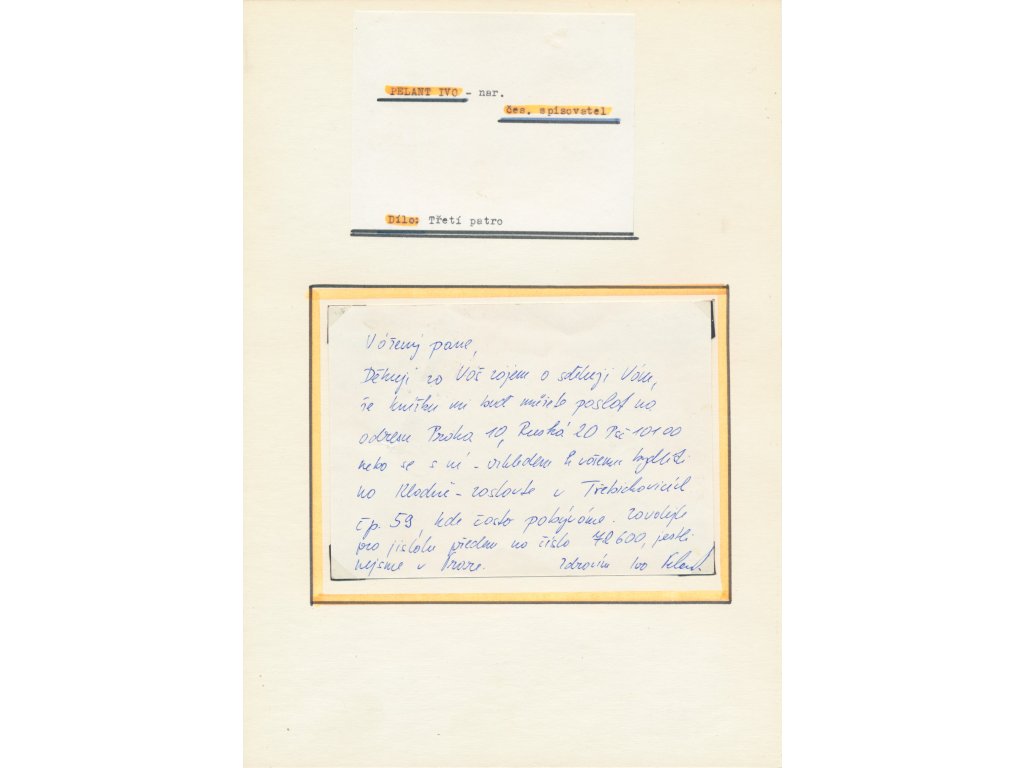 PELANT IVO - nar.
čes. spisovatel
Dílo: Třetí patro
Vážený pane,
Děkuji za Váš zájem a sděluji Vám,
že knížku mi buď můžete poslat na
adresu Praha 10, Ruská 20 PSČ 10100
nebo se s ní - vzhledem k vašemu bydlišti
na Kladně - zastavte v Třebichovicích
čp. 59, kde často pobýváme. Zavolejte
pro jistotu předem na číslo 72600, jestli
nejsme v Praze. Zdravím Ivo Pelant